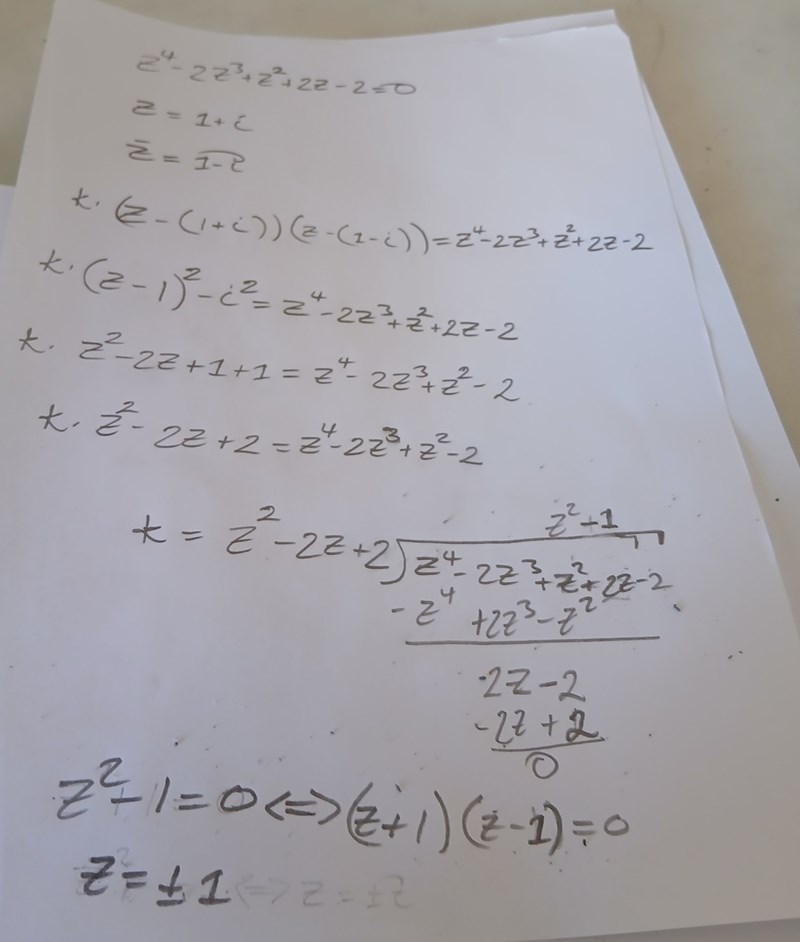 z⁴-2z³+z²+2z-2=0
z = 1+i
z̄ = 1-i
k. (z-(1+i))(z-(1-i))=z⁴-2z³+z²+2z-2
k. (z-1)²-i²=z⁴-2z³+z²+2z-2
k. z²-2z+1+1=z⁴-2z³+z²-2
k. z²-2z+2=z⁴-2z³+z²-2
z²+1
k = z²-2z+2)z⁴-2z³+z²+2z-2
-z⁴+2z³-z²
2z-2
-2z+2
0
z²-1=0<=>(z+1)(z-1)=0
z=±1